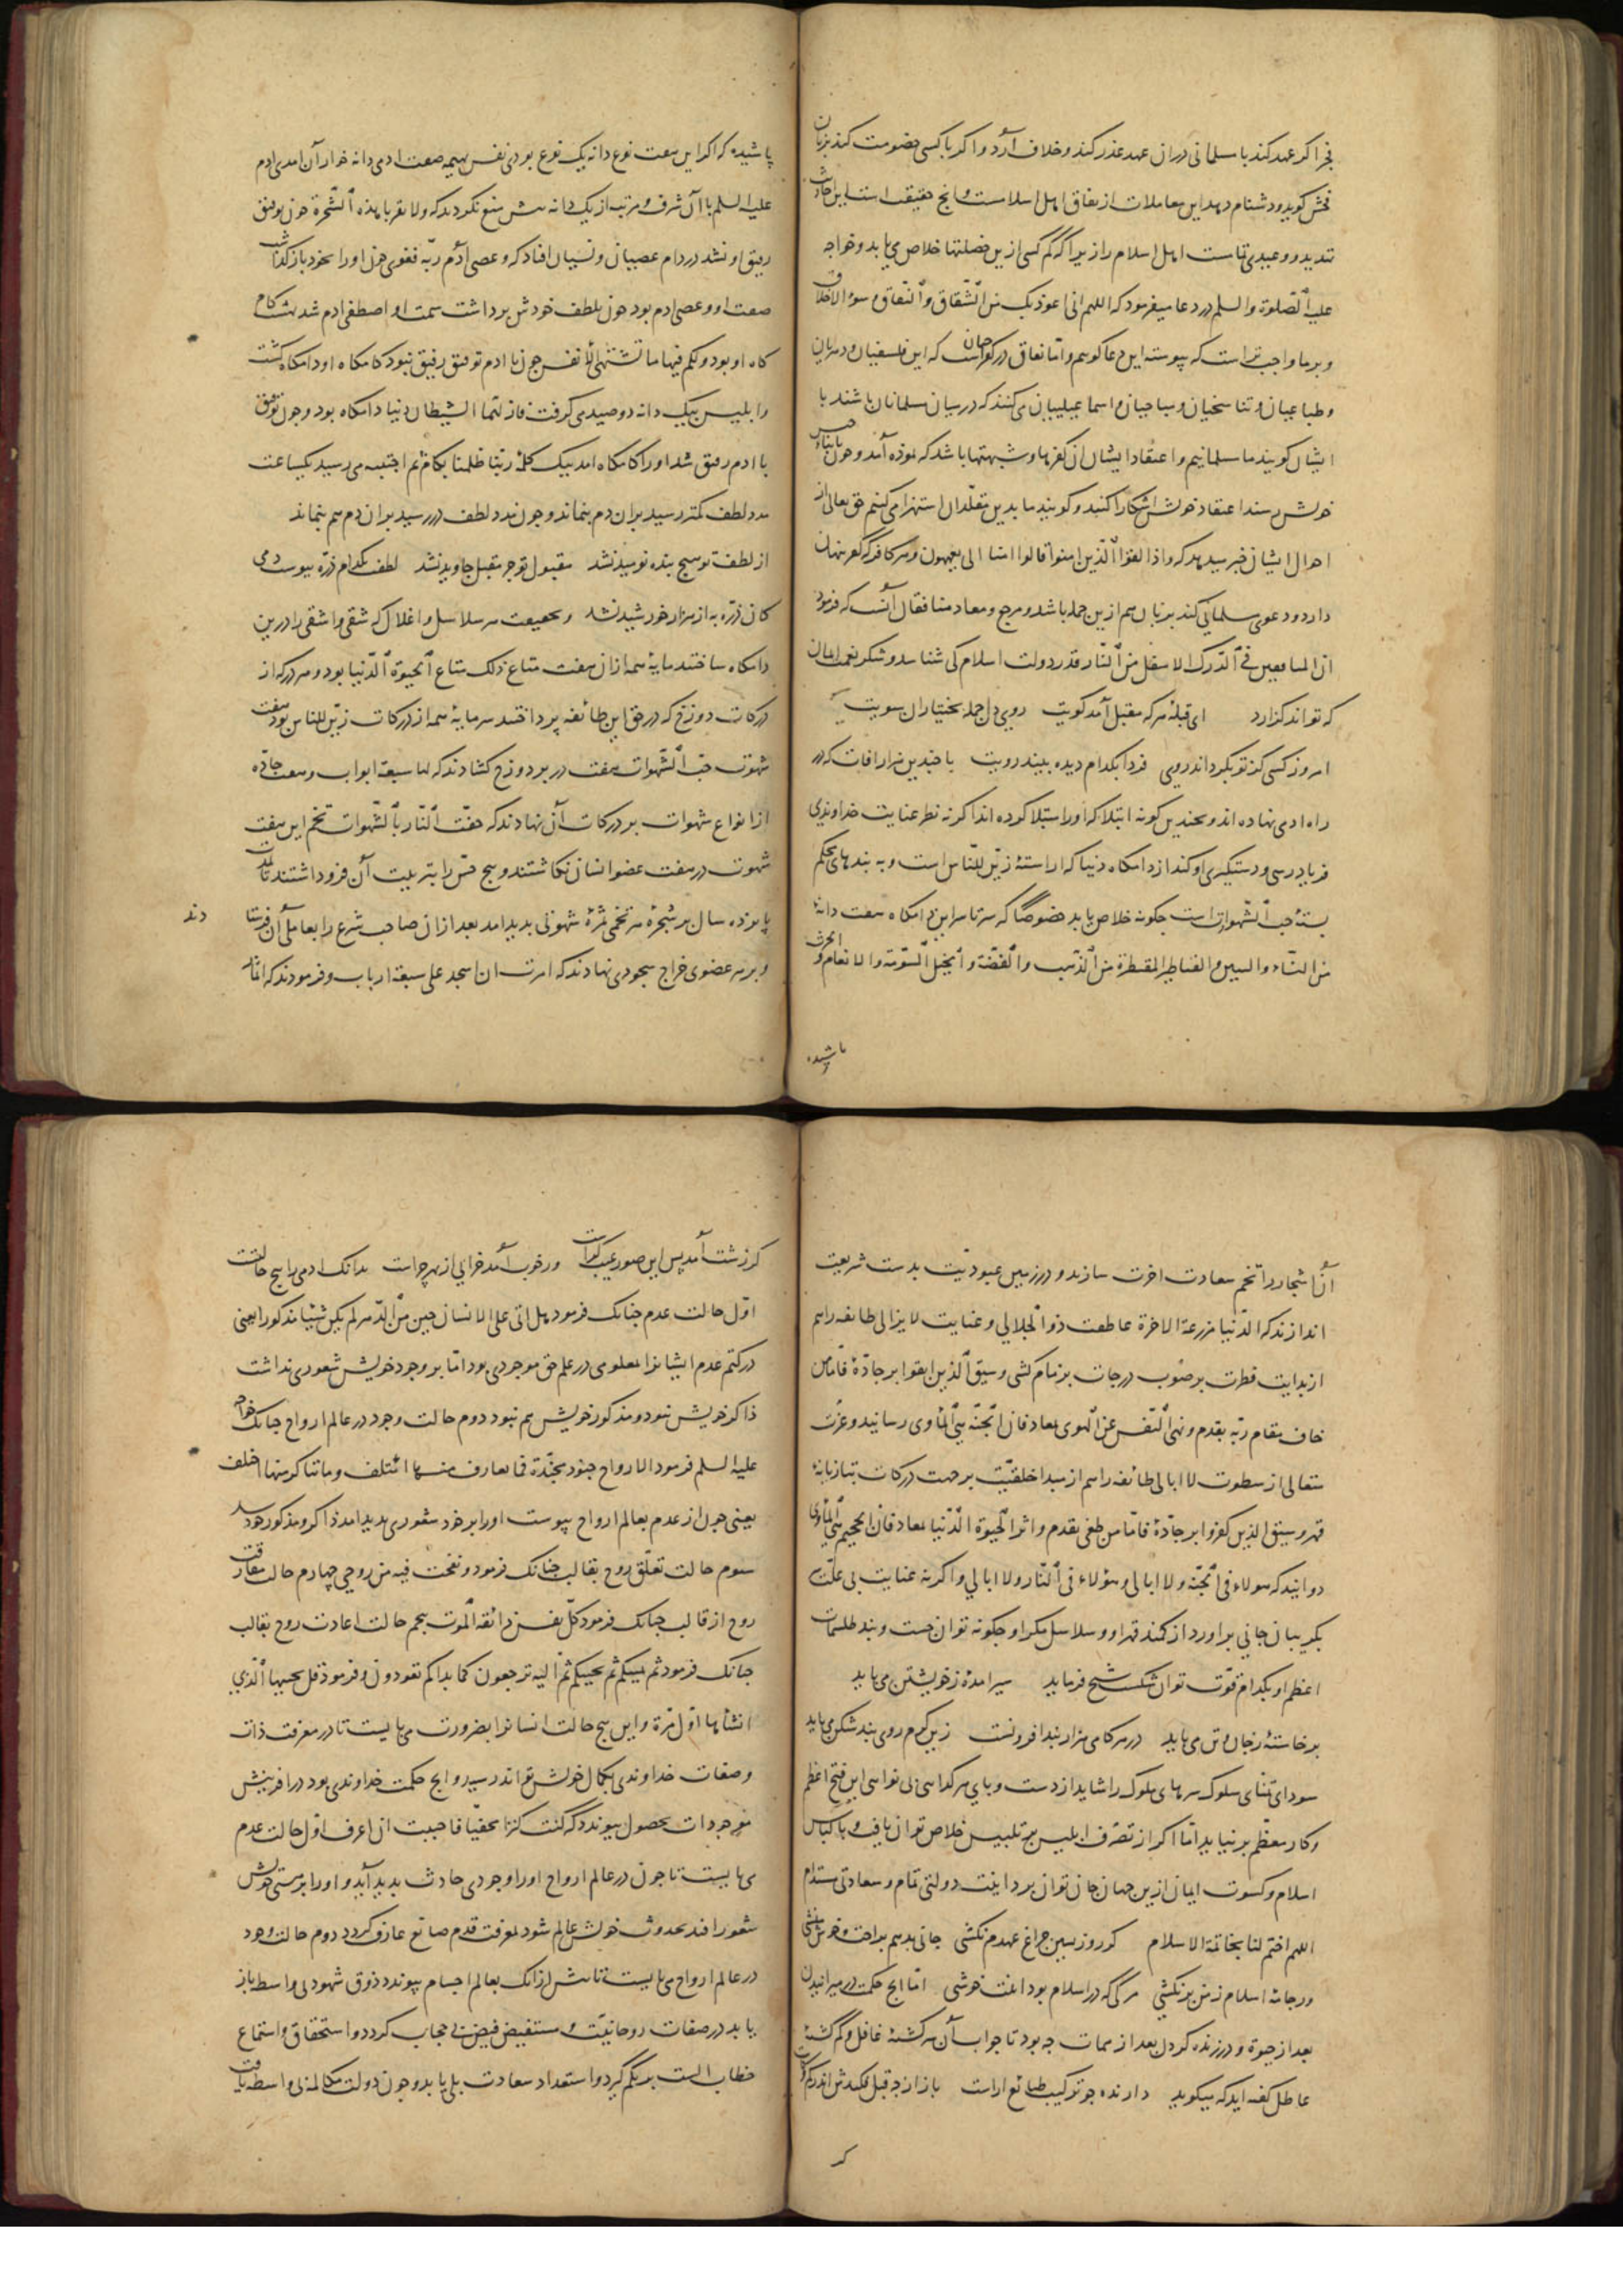 فجر اکر عهد کند با مسلمانی در ان عهد غدر کند و خلاف آرد و اکر با کسی خصومت کند بزبان
فحش کوید و دشنام دهد این معاملات از نفاق اهل اسلامست و انج حقیقت است این احادیث
تهدید و وعیدی تمامست اهل اسلام را زیرا که کم کسی ازین خصلتها خلاص می یابد و خواجه
علیه الصلوة والسلم در دعا میفرمود که اللهم انی اعوذ بک من الشقاق والنفاق وسوء الاخلاق
و بر ما واجب تر است که پیوسته این دعا کوییم و اما نفاق در کفر جنان است که این فلسفیان و دهریان
و طباعیان و تناسخیان و مباحیان و اسماعیلیان می کنند که در میان مسلمانان باشند با
ایشان کویند ما مسلمانیم و اعتقاد ایشان ان کفرها و شبهتها باشد که نموده آمد و جون با ابناء جنس
خویش رسند اعتقاد خویش اشکارا کنند و کویند ما بدین مقلدان استهزا می کنیم حق تعالی از
احوال ایشان خبر میدهد که واذا لقوا الذین امنوا قالوا امنا الی یعمهون و هر کافر که کفر پنهان
دارد و دعوی مسلمانی کند بزبان هم ازین جمله باشد و مرجع و معاد منافقان آنست که فرمود
ان المنافقین فی الدرک الاسفل من النار قدر دولت اسلام کی شناسد و شکر نعمت ایمان
که تواند کزارد ای قبله هر که مقبل آمد کویت روی دل جمله بختیاران سویت
امروز کسی کز تو بکرداند روی فردا بکدام دیده بیند رویت با جندین هزار افات که در
راه ادمی نهاده اند و بجندین کونه ابتلا که او را مبتلا کرده اند اکر نه نظر عنایت خداوندی
فریادرسی و دستکیری او کند از دامکاه دنیا که اراسته زین للناس است و به بندهای محکم
بسته حب الشهوات است جکونه خلاص یابد خصوصا که سرتاسر این دامکاه هفت دانه
من النساء والبنین والقناطیر المقنطرة من الذهب والفضة والخیل المسومة والانعام والحرث
پاشیده
پاشیده که اکر این هفت نوع دانه یک نوع بودی نفس بهیمه صفت ادمی دانه خوار آن امدی ادم
علیه السلم با آن شرف و مرتبه از یک دانه بیش منع نکردند که ولا تقربا هذه الشجرة جون توفیق
رفیق او نشد در دام عصیان و نسیان افتاد که وعصی آدم ربه فغوی جون او را بخود باز کذاشت
صفت او وعصی ادم بود جون بلطف خودش برداشت سمت او اصطفی ادم شد بهشت کام
کاه او بود ولکم فیها ما تشتهی الانفس جون با ادم توفیق رفیق نبود کامکاه او دامکاه کشت
را بلیس بیک دانه دو صید می کرفت فازلهما الشیطان دنیا دامکاه بود و جون توفیق
با ادم رفیق شد او را کامکاه امد بیک کلمه ربنا ظلمنا بکام ثم اجتبیه می رسید یکساعت
مدد لطف کمتر رسید بران دم بنماند و جون مدد لطف در رسید بران دم هم بنماند
از لطف تو هیج بنده نومید نشد مقبول تو جز مقبل جاوید نشد لطفت بکدام ذره پیوست دمی
کان ذره به از هزار خورشید نشد و بحقیقت هر سلاسل و اغلال که شقی و اشقی را درین
دامکاه ساختند مایه همه ازان هفت متاع ذلک متاع الحیوة الدنیا بود و هر درکه از
درکات دوزخ که در حق این طائفه پرداختند سرمایه همه از درکات زین للناس بود هفت
شهوت حب الشهوات هفت در بر دوزخ کشادند که لها سبعة ابواب و هفت جاده
از انواع شهوات بر درکات آن نهادند که حفت النار بالشهوات تخم این هفت
شهوت در هفت عضو انسان بکاشتند و هیج حس را بتربیت آن فرو داشتند تا مدت
پانزده سال بر شجره هر تخمی ثمره شهوتی بدید امد بعد ازان صاحب شرع را بعاملی آن فرستا
دند
و بر هر عضوی خراج سجودی نهادند که امرت ان اسجد علی سبعة اراب و فرمودند که اثمار
آن اشجار را تخم سعادت اخرت سازند و در زمین عبودیت بدست شریعت
اندازند که الدنیا مزرعة الاخرة عاطفت ذو الجلالی و عنایت لایزالی طائفه را هم
از بدایت فطرت بر صوب درجات بزمام کشی وسیق الذین اتقوا بر جاده فاما من
خاف مقام ربه بقدم ونهی النفس عن الهوی بمعاد فان الجنة هی المأوی رسانید و عزت
متعالی از سطوت لا ابالی طائفه را هم از مبدا خلقیت بر جهت درکات بتازیانه
قهر وسیق الذین کفروا بر جاده فاما من طغی بقدم واثر الحیوة الدنیا بمعاد فان الجحیم هی المأوی
دوانید که هولاء فی الجنة ولا ابالی وهؤلاء فی النار ولا ابالی و اکر نه عنایت بی علت
بکریبان جانی براورد از کمند قهر او و سلاسل مکر او جکونه توان جست و بند طلسمات
اعظم او بکدام قوت توان شکست شیخ فرماید سیر امده ز خویشتن می باید
برخاسته ز جان و تن می باید در هر کامی هزار بند افزونست زین کرم روی بند شکن می باید
سودای تمنای سلوک سرهای ملوک را شاید از دست و پای هر کدایی بی نوایی این فتح اعظم
و کار معظم برنیاید اما اکر از تصرف ابلیس پر تلبیس خلاص توان یافت و با لباس
اسلام و کسوت ایمان ازین جهان جان توان برد اینت دولتی تمام و سعادتی مستدام
اللهم اختم لنا بخاتمة الاسلام کر روز پسین جراغ عهدم نکشی جانی بدهم براحت و خوش منشی
ور جامه اسلام ز من برنکشی مرکی که در اسلام بود اینت خوشی اما انج حکمت در میرانیدن
بعد از حیوة و در زنده کردن بعد از ممات جه بود تا جواب آن سرکشته غافل و کم کشته
عاطل کفته اید که میکوید دارنده جو ترکیب طبائع اراست باز از جه قبل فکندش اندر کم و کاست
کر
کر زشت آمد پس این صور عیب کراست ور خوب آمد خرابی از بهر جراست بدانک ادمی را پنج حالتست
اول حالت عدم جنانک فرمود هل اتی علی الانسان حین من الدهر لم یکن شیئا مذکورا یعنی
در کتم عدم ایشانرا معلومی در علم حق موجودی بود اما بر وجود خویش شعوری نداشت
ذاکر خویش نبود و مذکور خویش هم نبود دوم حالت وجود در عالم ارواح جنانک خواجه
علیه السلم فرمود الارواح جنود مجندة فما تعارف منها ائتلف وما تناکر منها اختلف
یعنی جون از عدم بعالم ارواح پیوست او را بر خود شعوری بدید امد ذاکر و مذکور خود شد
سوم حالت تعلق روح بقالب جنانک فرمود ونفخت فیه من روحی جهارم حالت مفارقت
روح از قالب جنانک فرمود کل نفس ذائقة الموت پنجم حالت اعادت روح بقالب
جنانک فرمود ثم یمیتکم ثم یحییکم ثم الیه ترجعون کما بداکم تعودون و فرمود قل یحییها الذی
انشأها اول مرة و این پنج حالت انسانرا بضرورت می بایست تا در معرفت ذات
و صفات خداوندی بکمال خویش تواند رسید و انج حکمت خداوندی بود در افرینش
موجودات بحصول پیوندد که کنت کنزا مخفیا فاحببت ان اعرف اول حالت عدم
می بایست تا جون در عالم ارواح او را وجودی حادث بدید آید و او را بر هستی خویش
شعور افتد بحدوث خویش عالم شود بمعرفت قدم صانع عارف کردد دوم حالت وجود
در عالم ارواح می بایست تا پیش ازانک بعالم اجسام پیوندد ذوق شهود بی واسطه باز
یابد در صفات روحانیت و مستفیض فیض بی حجاب کردد و استحقاق و استماع
خطاب الست بربکم کیرد و استعداد سعادت بلی یابد و جون دولت مکالمه بی واسطه یافت